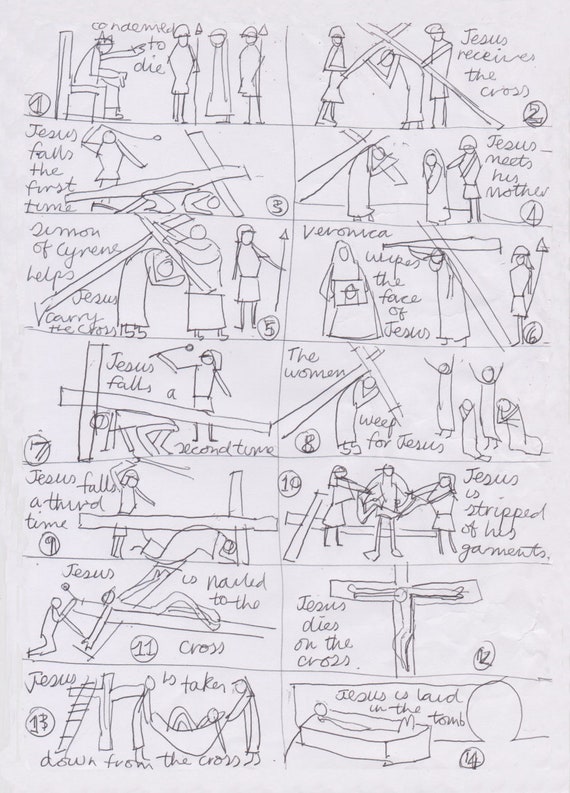 condemned
to
die
1
Jesus
receives
the
cross
2
Jesus
falls
the
first
time
3
Jesus
meets
his
mother
4
Simon
of Cyrene
helps
Jesus
carry
the cross
5
Veronica
wipes
the
face
of
Jesus
6
Jesus
falls a
second time
7
The
women
weep
for Jesus
8
Jesus falls
a third
time
9
10
Jesus
is
stripped
of his
garments.
Jesus is nailed
to the
cross
11
Jesus
dies
on the
cross.
12
Jesus is taken
down from the cross
13
Jesus is laid
in the tomb
14